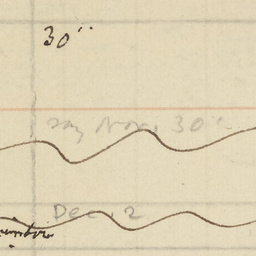 30"
say Nov. 30"
Dec. 2